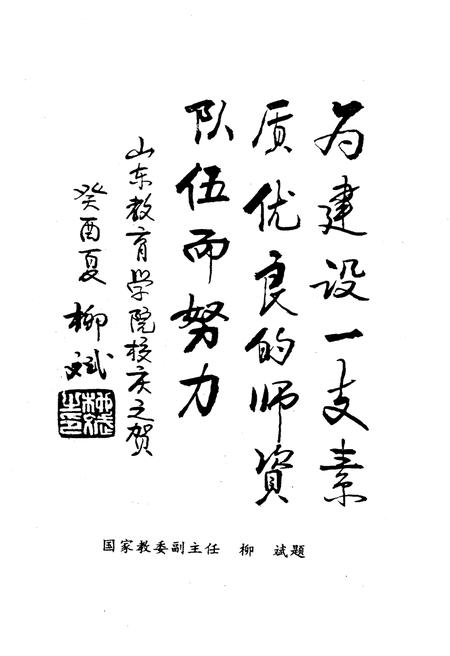 为建设一支素
质优良的师资
队伍而努力
山东教育学院校庆之贺
癸酉夏 柳斌
柳斌之印
国家教委副主任 柳 斌题